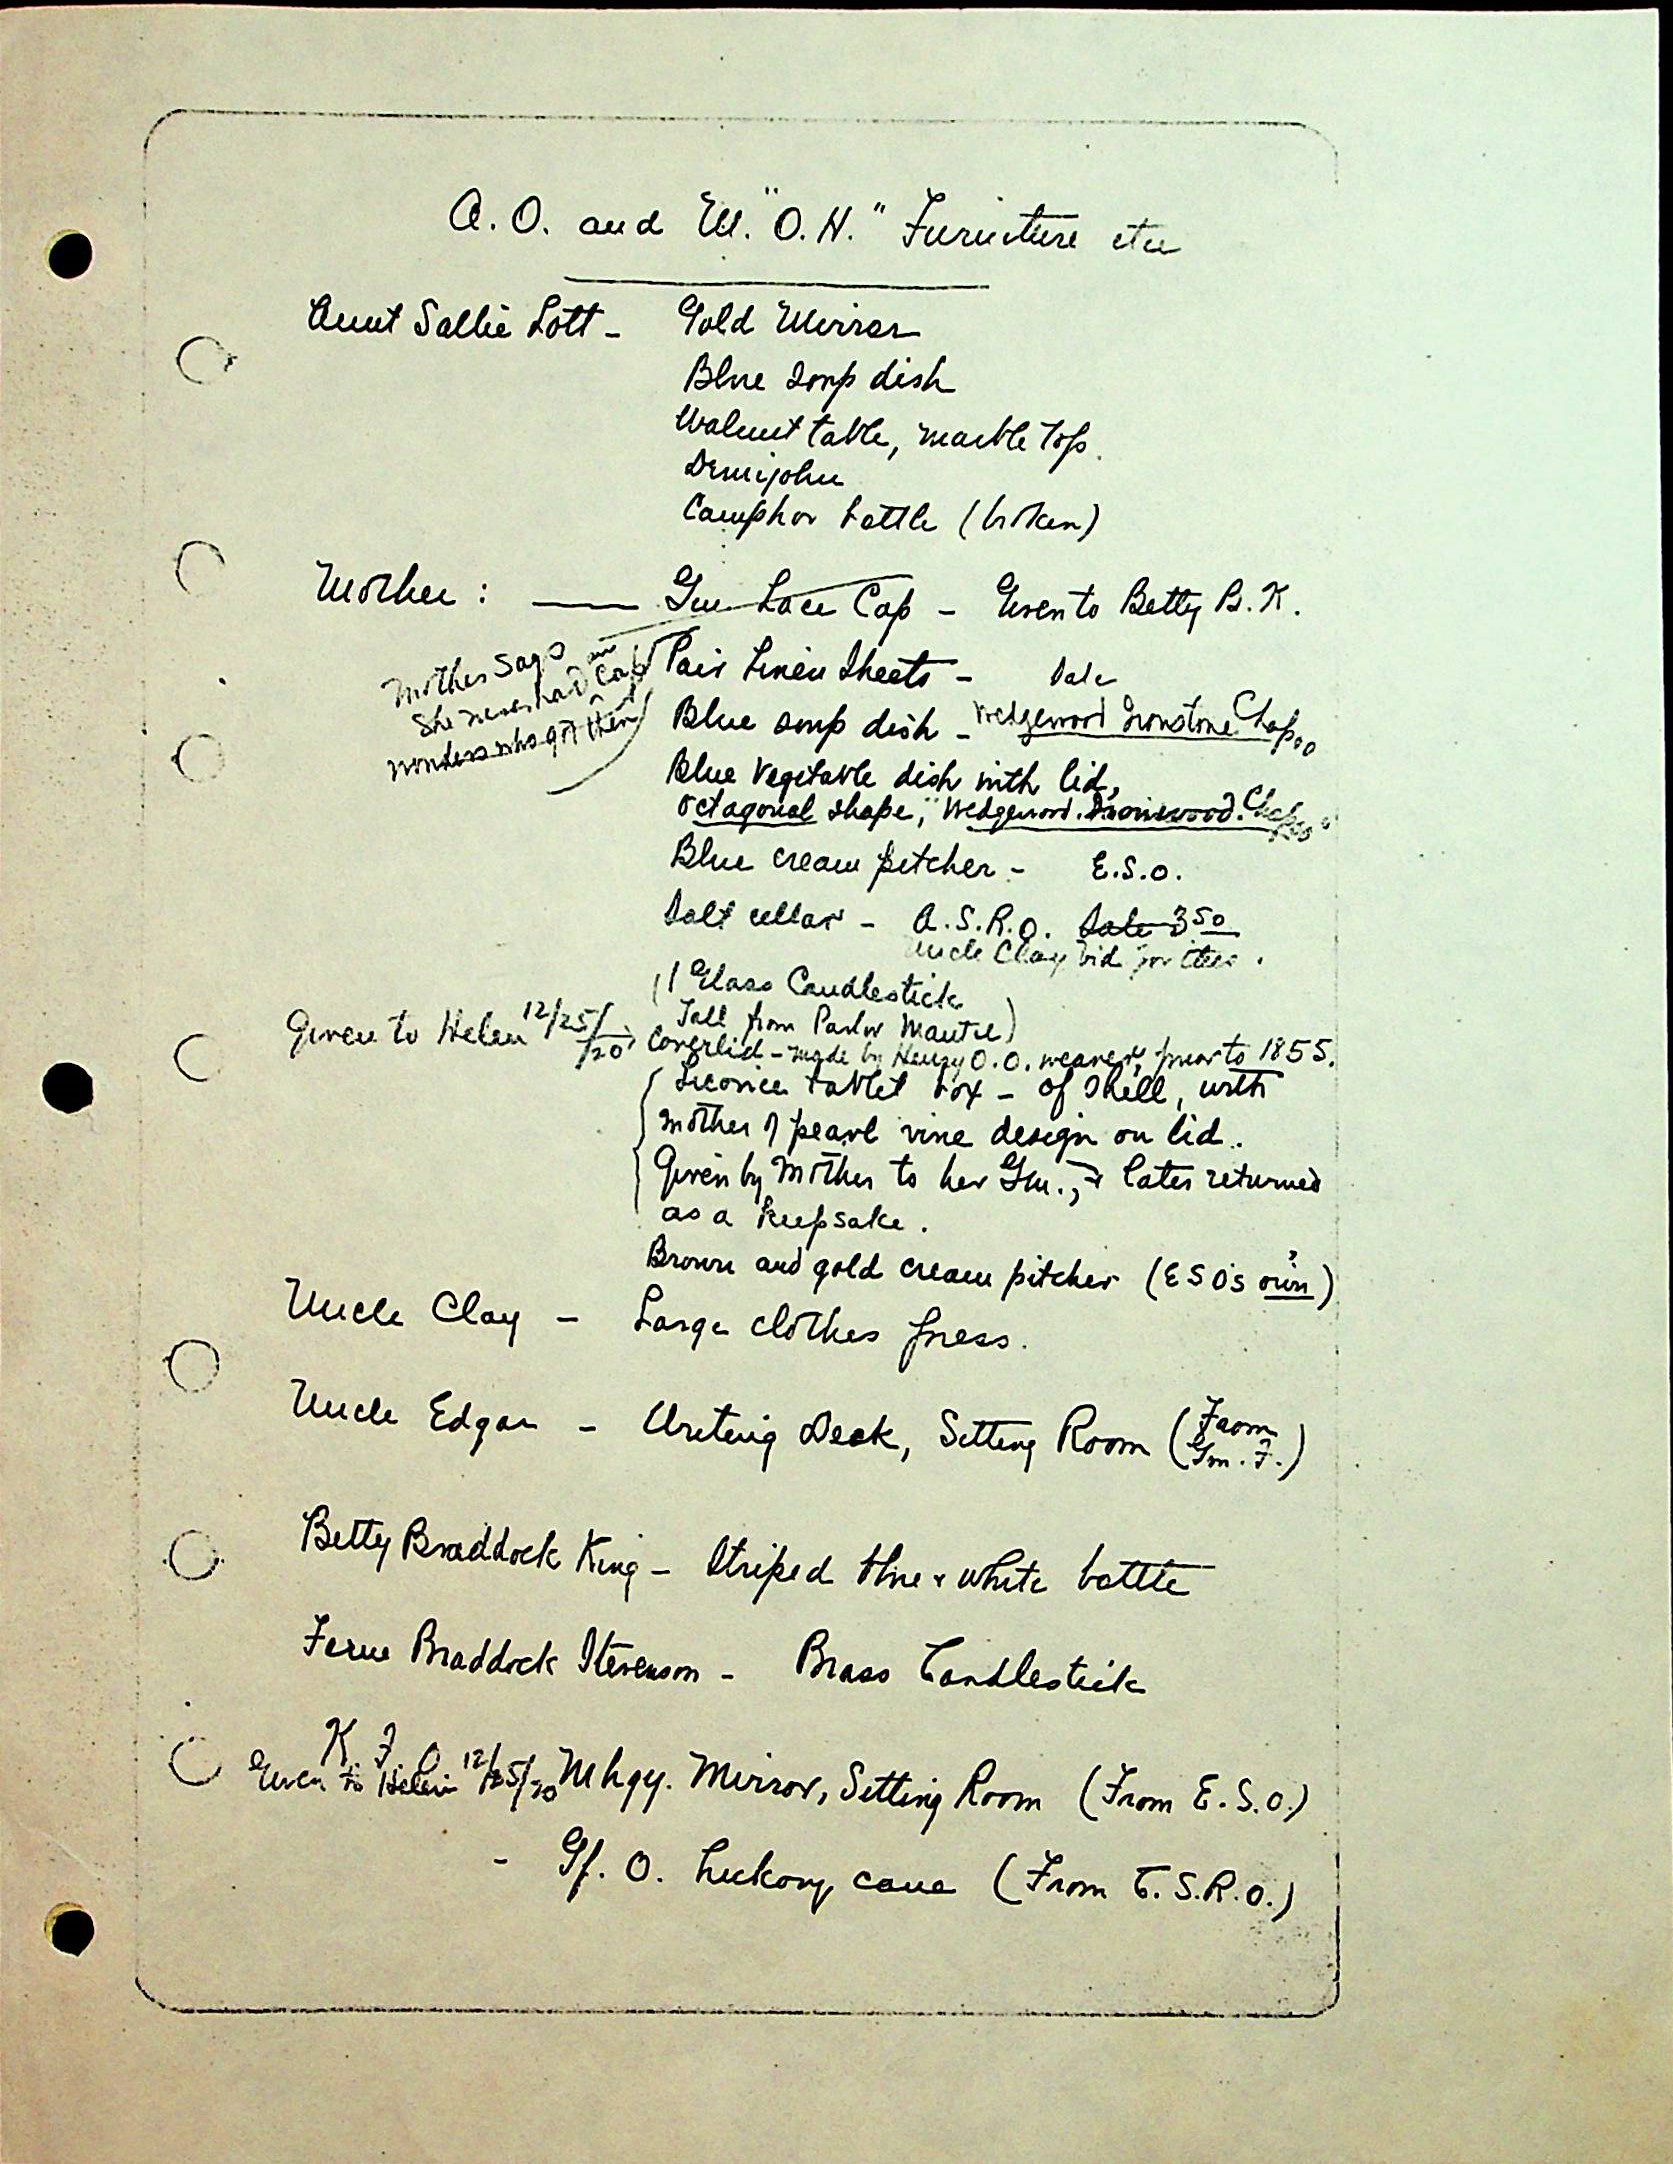 A. O. and M. "O. H." Furniture etc
Aunt Sallie Lott - Gold Mirror
Blue soup dish
Walnut table, marble top.
Demijohn
Camphor bottle (broken)
Mother: — Gm Lace Cap - Given to Betty B. K.
Mother says
she never had any cap
wonders who got them
Pair Linen Sheets - Sale
Blue soup dish - Wedgewood Ironstone Chapoo
Blue Vegetable dish with lid,
octagonal shape, "Wedgewood. Ironstone. Chapoo"
Blue cream pitcher - E.S.O.
Salt cellar - A.S.R.O. Sale 3 50
Uncle Clay bid for this.
(1 Glass Candlestick
Tall from Parlor Mantel)
Given to Helen 12/25/20 Coverlid - made by Henry O. O. weaver, prior to 1855.
Licorice tablet box - of shell, with
mother of pearl vine design on lid.
Given by Mother to her Gm., & later returned
as a keepsake.
Brown and gold cream pitcher (ESO's own?)
Uncle Clay - Large clothes press.
Uncle Edgar - Writing Desk, Sitting Room (From Gm. F.)
Betty Braddock King - Striped blue & white bottle
Ferne Braddock Stevenson - Brass Candlestick
K F O
Given to Helen 12/25/20 Mhgy. Mirror, Sitting Room (From E.S.O.)
- Gf. O. hickory cane (From E.S.R.O.)